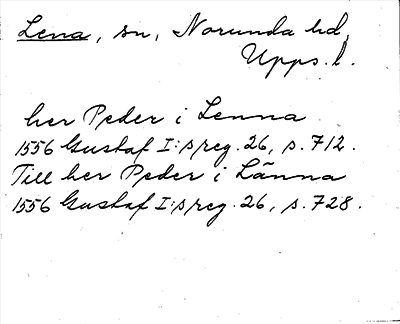 Lena, sn, Norunda hd,
Upps. l.
her Peder i Lenna
1556 Gustaf I:s reg. 26, s. 712.
Till her Peder i Länna
1556 Gustaf I:s reg. 26, s. 728.